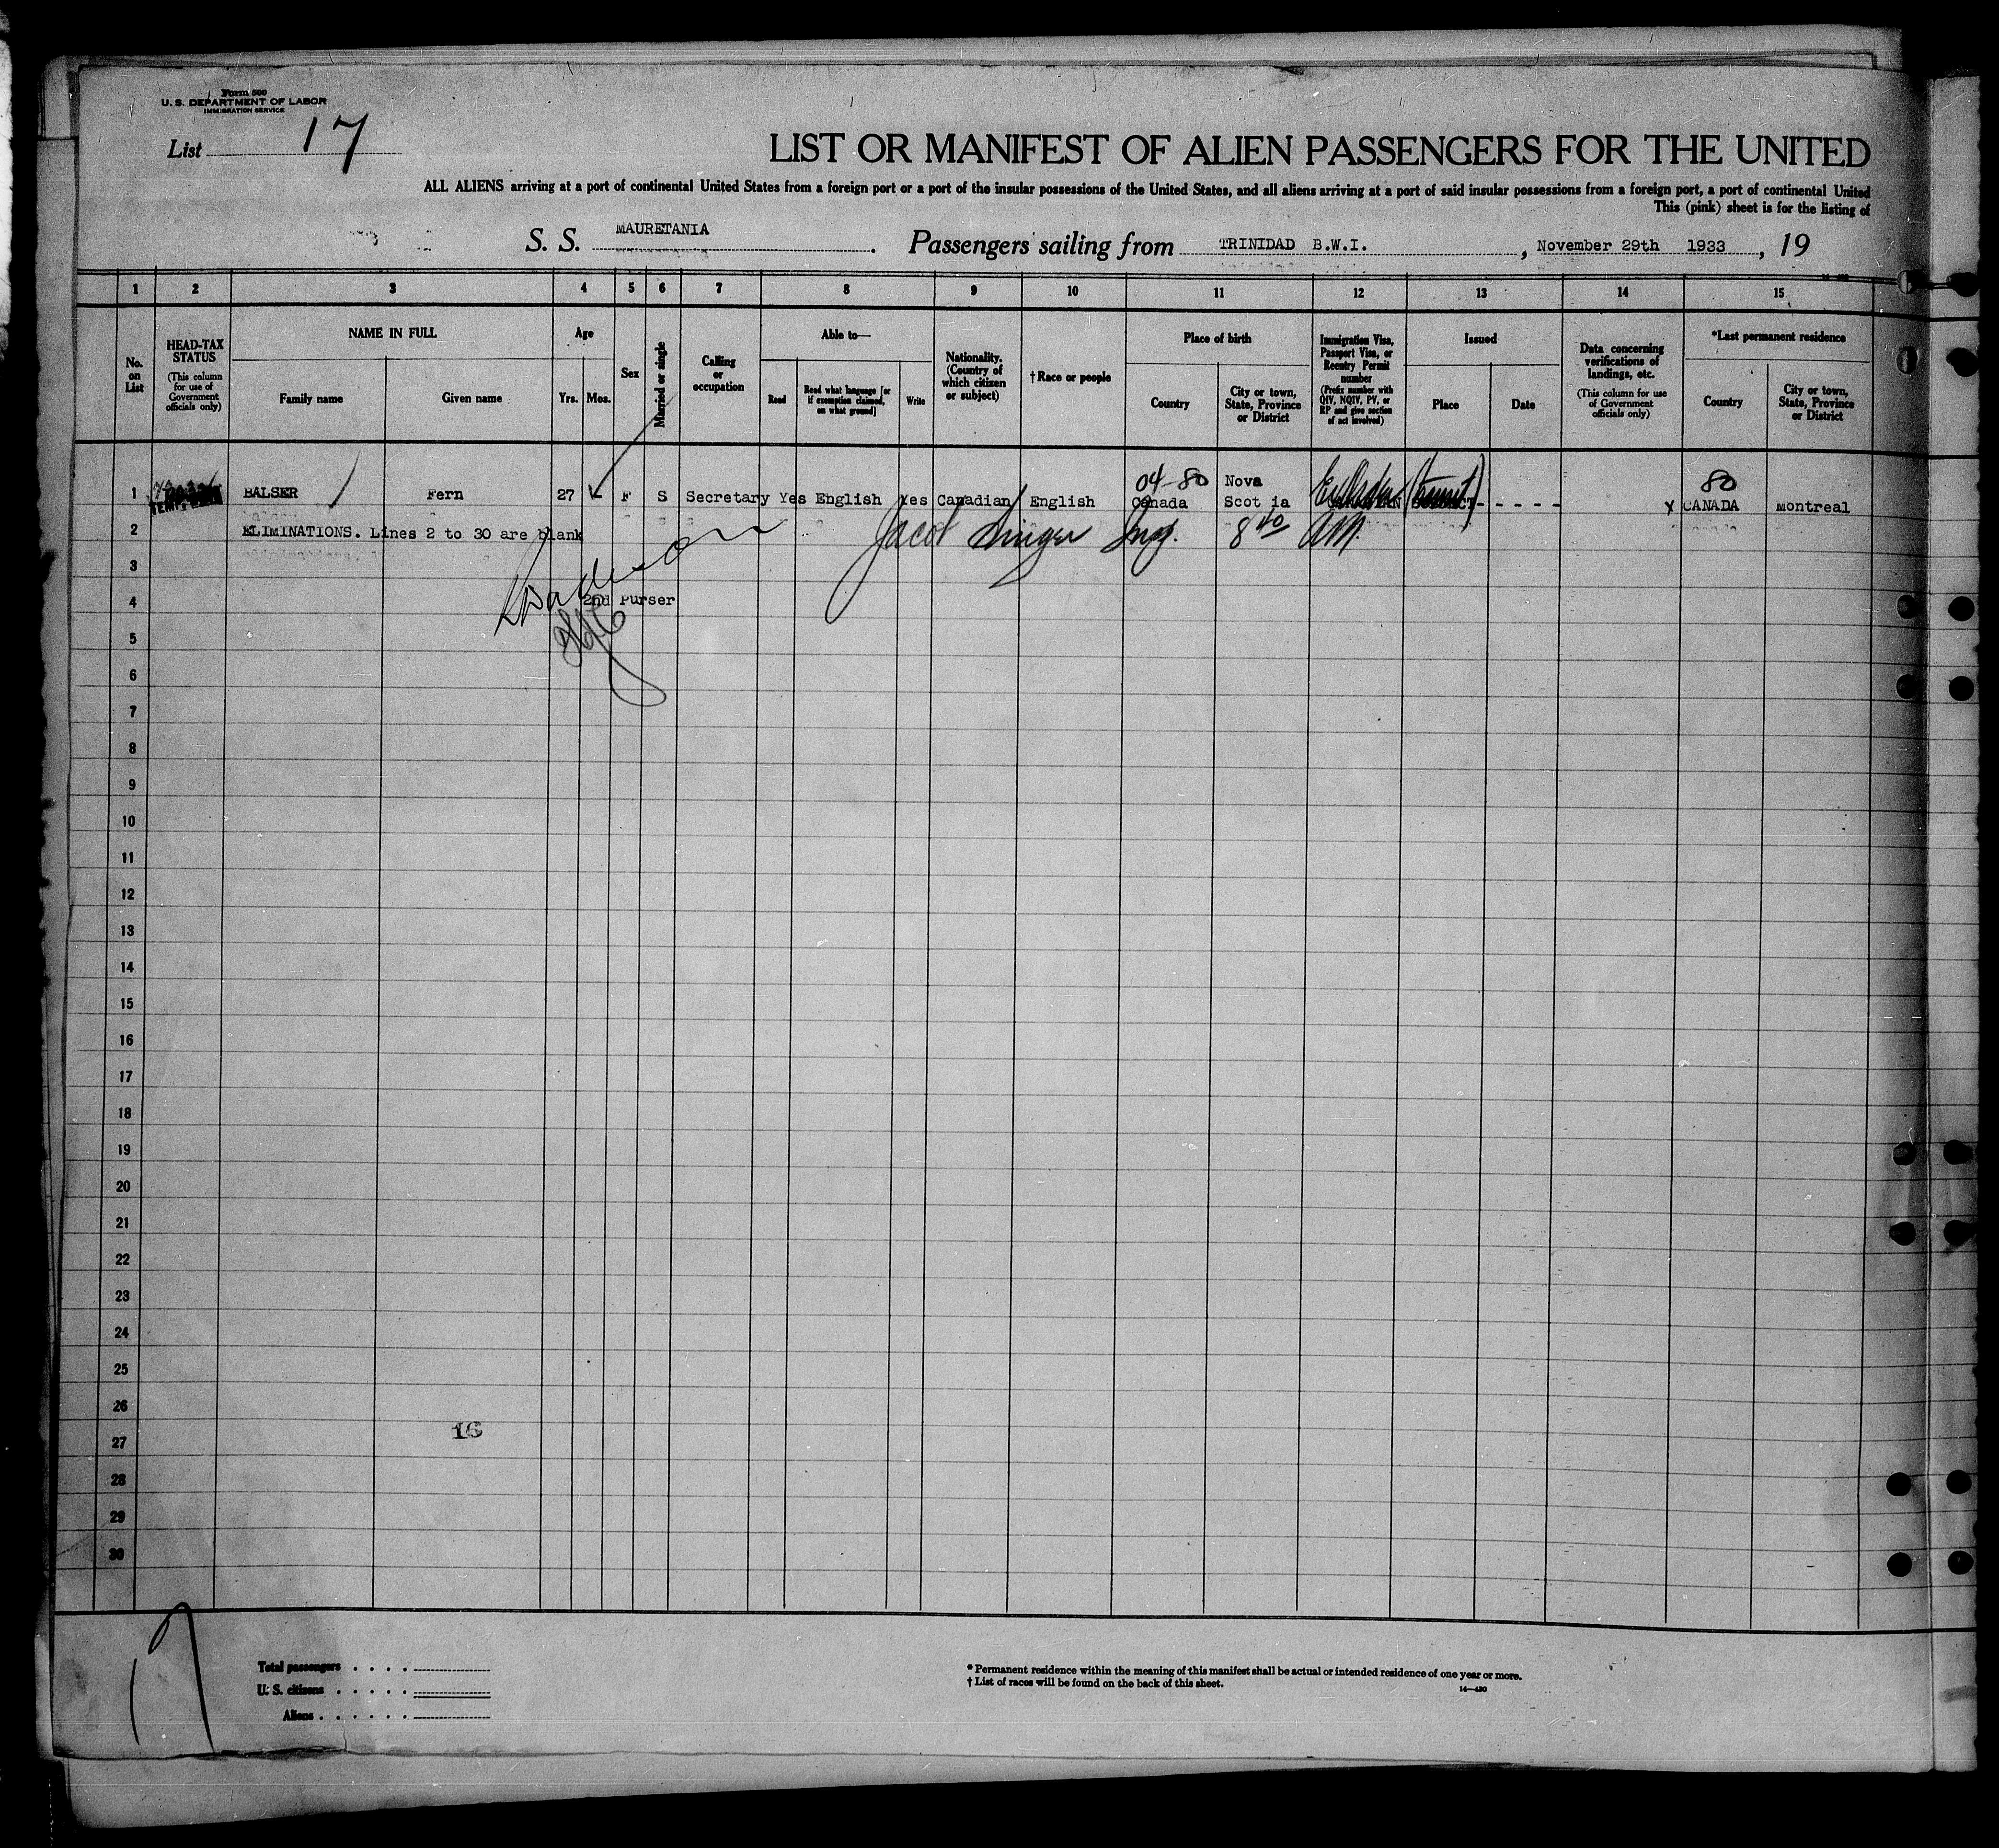 Form 500
U. S. DEPARTMENT OF LABOR
IMMIGRATION SERVICE
List 17
LIST OR MANIFEST OF ALIEN PASSENGERS FOR THE UNITED
ALL ALIENS arriving at a port of continental United States from a foreign port or a port of the insular possessions of the United States, and all aliens arriving at a port of said insular possessions from a foreign port, a port of continental United
This (pink) sheet is for the listing of
S. S. MAURETANIA. Passengers sailing from TRINIDAD B.W.I., November 29th 1933, 19
1 2 3 4 5 6 7 8 9 10 11 12 13 14 15
No. on List
HEAD-TAX STATUS
(This column for use of Government officials only)
NAME IN FULL
Family name
Given name
Age
Yrs.
Mos.
Sex
Married or single
Calling or occupation
Able to—
Read
Read what language [or if exemption claimed, on what ground]
Write
Nationality. (Country of which citizen or subject)
† Race or people
Place of birth
Country
City or town, State, Province or District
Immigration Visa, Passport Visa, or Reentry Permit number
(Prefix number with QIV, NQIV, PV, or RP and give section of act involved)
Issued
Place
Date
Data concerning verifications of landings, etc.
(This column for use of Government officials only)
*Last permanent residence
Country
City or town, State, Province or District
04-80 Nova 80
1 BALSER Fern 27 F S Secretary Yes English Yes Canadian English Canada Scot ia - - - - - x CANADA Montreal
2 ELIMINATIONS. Lines 2 to 30 are blank Jacob Singer Insp. 8 40 AM.
3
4 2nd Purser
5
6
7
8
9
10
11
12
13
14
15
16
17
18
19
20
21
22
23
24
25
26
16
27
28
29
30
17
Total passengers . . . .
U. S. citizens . . . . .
Aliens . . . . . .
* Permanent residence within the meaning of this manifest shall be actual or intended residence of one year or more.
† List of races will be found on the back of this sheet.
14—430